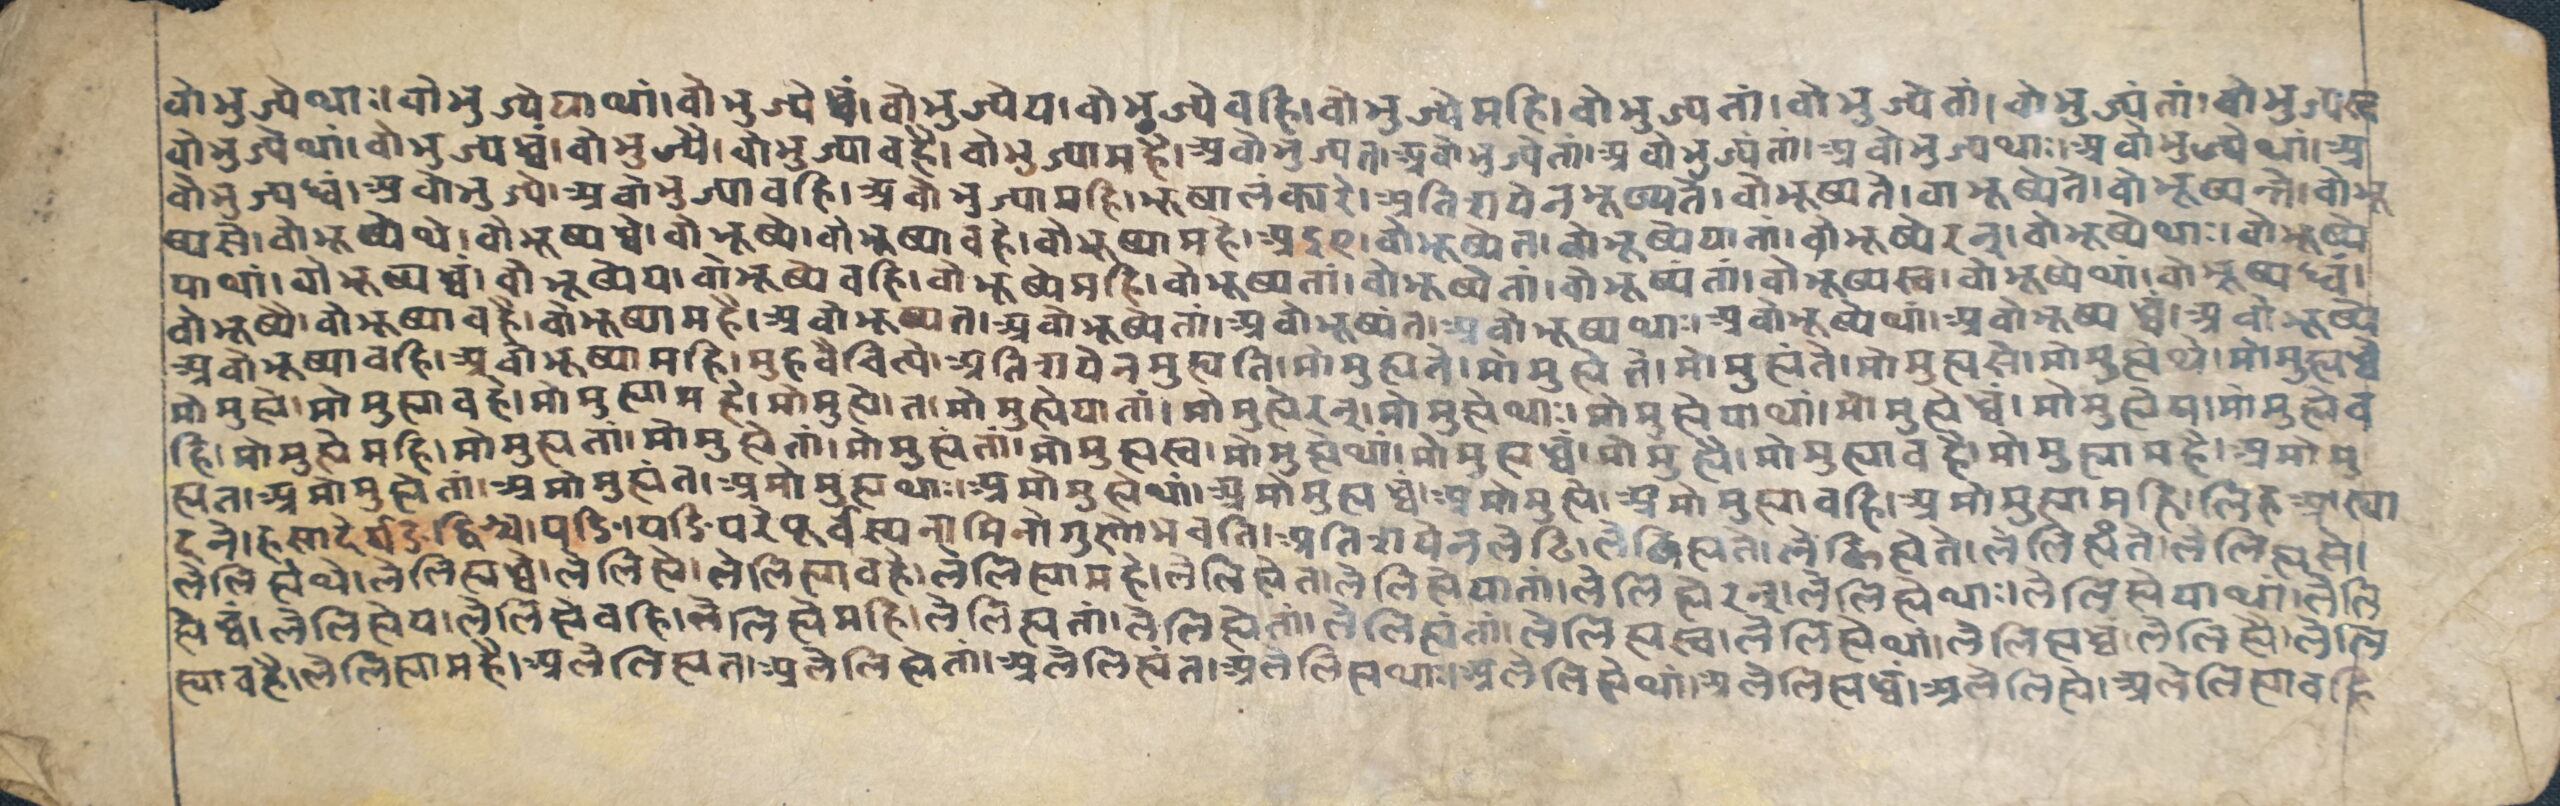 वोभुज्येथाः।वोभुज्येयाथां।वोभुज्येध्वं।वोभुज्येय।वोभुज्येवहि।वोभुज्येमहि।वोभुज्यतां।वोभुज्येतां।वोभुज्यंतां।वोभुज्यस्व
वोभुज्येथां।वोभुज्यध्वं।वोभुज्यै।वोभुज्यावहै।वोभुज्यामहै।अवोभुज्यत।अवोभुज्येतां।अवोभुज्यंतां।अवोभुज्यथाः।अवोभुज्येथां।अ
वोभुज्यध्वं।अवोभुज्ये।अवोभुज्यावहि।अवोभुज्यामहि।भूषालंकारे।अतिशयेनभूष्यते।वोभूष्यते।वोभूष्येते।वोभूष्यन्ते।वोभू
ष्यसे।वोभूष्येथे।वोभूष्यध्वे।वोभूष्ये।वोभूष्यावहे।वोभूष्यामहे।वोभूष्येत।वोभूष्येयातां।वोभूष्येरन्।वोभूष्येथाः।वोभूष्ये
याथां।वोभूष्यध्वं।वोभूष्येय।वोभूष्येवहि।वोभूष्येमहि।वोभूष्यतां।वोभूष्येतां।वोभूष्यंतां।वोभूष्यस्व।वोभूष्येथां।वोभूष्यध्वं।
वोभूष्यै।वोभूष्यावहै।वोभूष्यामहै।अवोभूष्यत।अवोभूष्येतां।अवोभूष्यंत।अवोभूष्यथाः।अवोभूष्येथां।अवोभूष्यध्वं।अवोभूष्ये
अवोभूष्यावहि।अवोभूष्यामहि।मुहवैचित्ये।अतिशयेनमुह्यति।मोमुह्यते।मोमुह्येते।मोमुह्यंते।मोमुह्यसे।मोमुह्येथे।मोमुह्यध्वे
मोमुह्ये।मोमुह्यावहे।मोमुह्यामहे।मोमुह्ये।त।मोमुह्येयातां।मोमुह्येरन्।मोमुह्येथाः।मोमुह्येयाथां।मोमुह्येध्वं।मोमुह्येय।मोमुह्येव
हि।मोमुह्येमहि।मोमुह्यतां।मोमुह्येतां।मोमुह्यंतां।मोमुह्यस्व।मोमुह्येथां।मोमुह्यध्वं।मोमुह्यै।मोमुह्यावहै।मोमुह्यामहै।अमोमु
ह्यत।अमोमुह्येतां।अमोमुह्यंत।अमोमुह्यथाः।अमोमुह्येथां।अमोमुह्यध्वं।अमोमुह्ये।अमोमुह्यावहि।अमोमुह्यामहि।लिहआस्वा
दने।यङि।यङिपरेपूर्वस्यनामिनोगुणोभवति।अतिशयेनलेढि।लेलिह्यते।लेलिह्येते।लेलिह्यंते।लेलिह्यसे।
लेलिह्येथे।लेलिह्यध्वे।लेलिह्ये।लेलिह्यावहे।लेलिह्यामहे।लेलिह्येत।लेलिह्येयातां।लेलिह्येरन्।लेलिह्येथाः।लेलिह्येयाथां।लेलि
ह्येध्वं।लेलिह्येय।लेलिह्येवहि।लेलिह्येमहि।लेलिह्यतां।लेलिह्येतां।लेलिह्यंतां।लेलिह्यस्व।लेलिह्येथां।लेलिह्यध्वं।लेलिह्यै।लेलि
ह्यावहै।लेलिह्यामहै।अलेलिह्यत।अलेलिह्येतां।अलेलिह्यंत।अलेलिह्यथाः।अलेलिह्येथां।अलेलिह्यध्वं।अलेलिह्ये।अलेलिह्यावहि